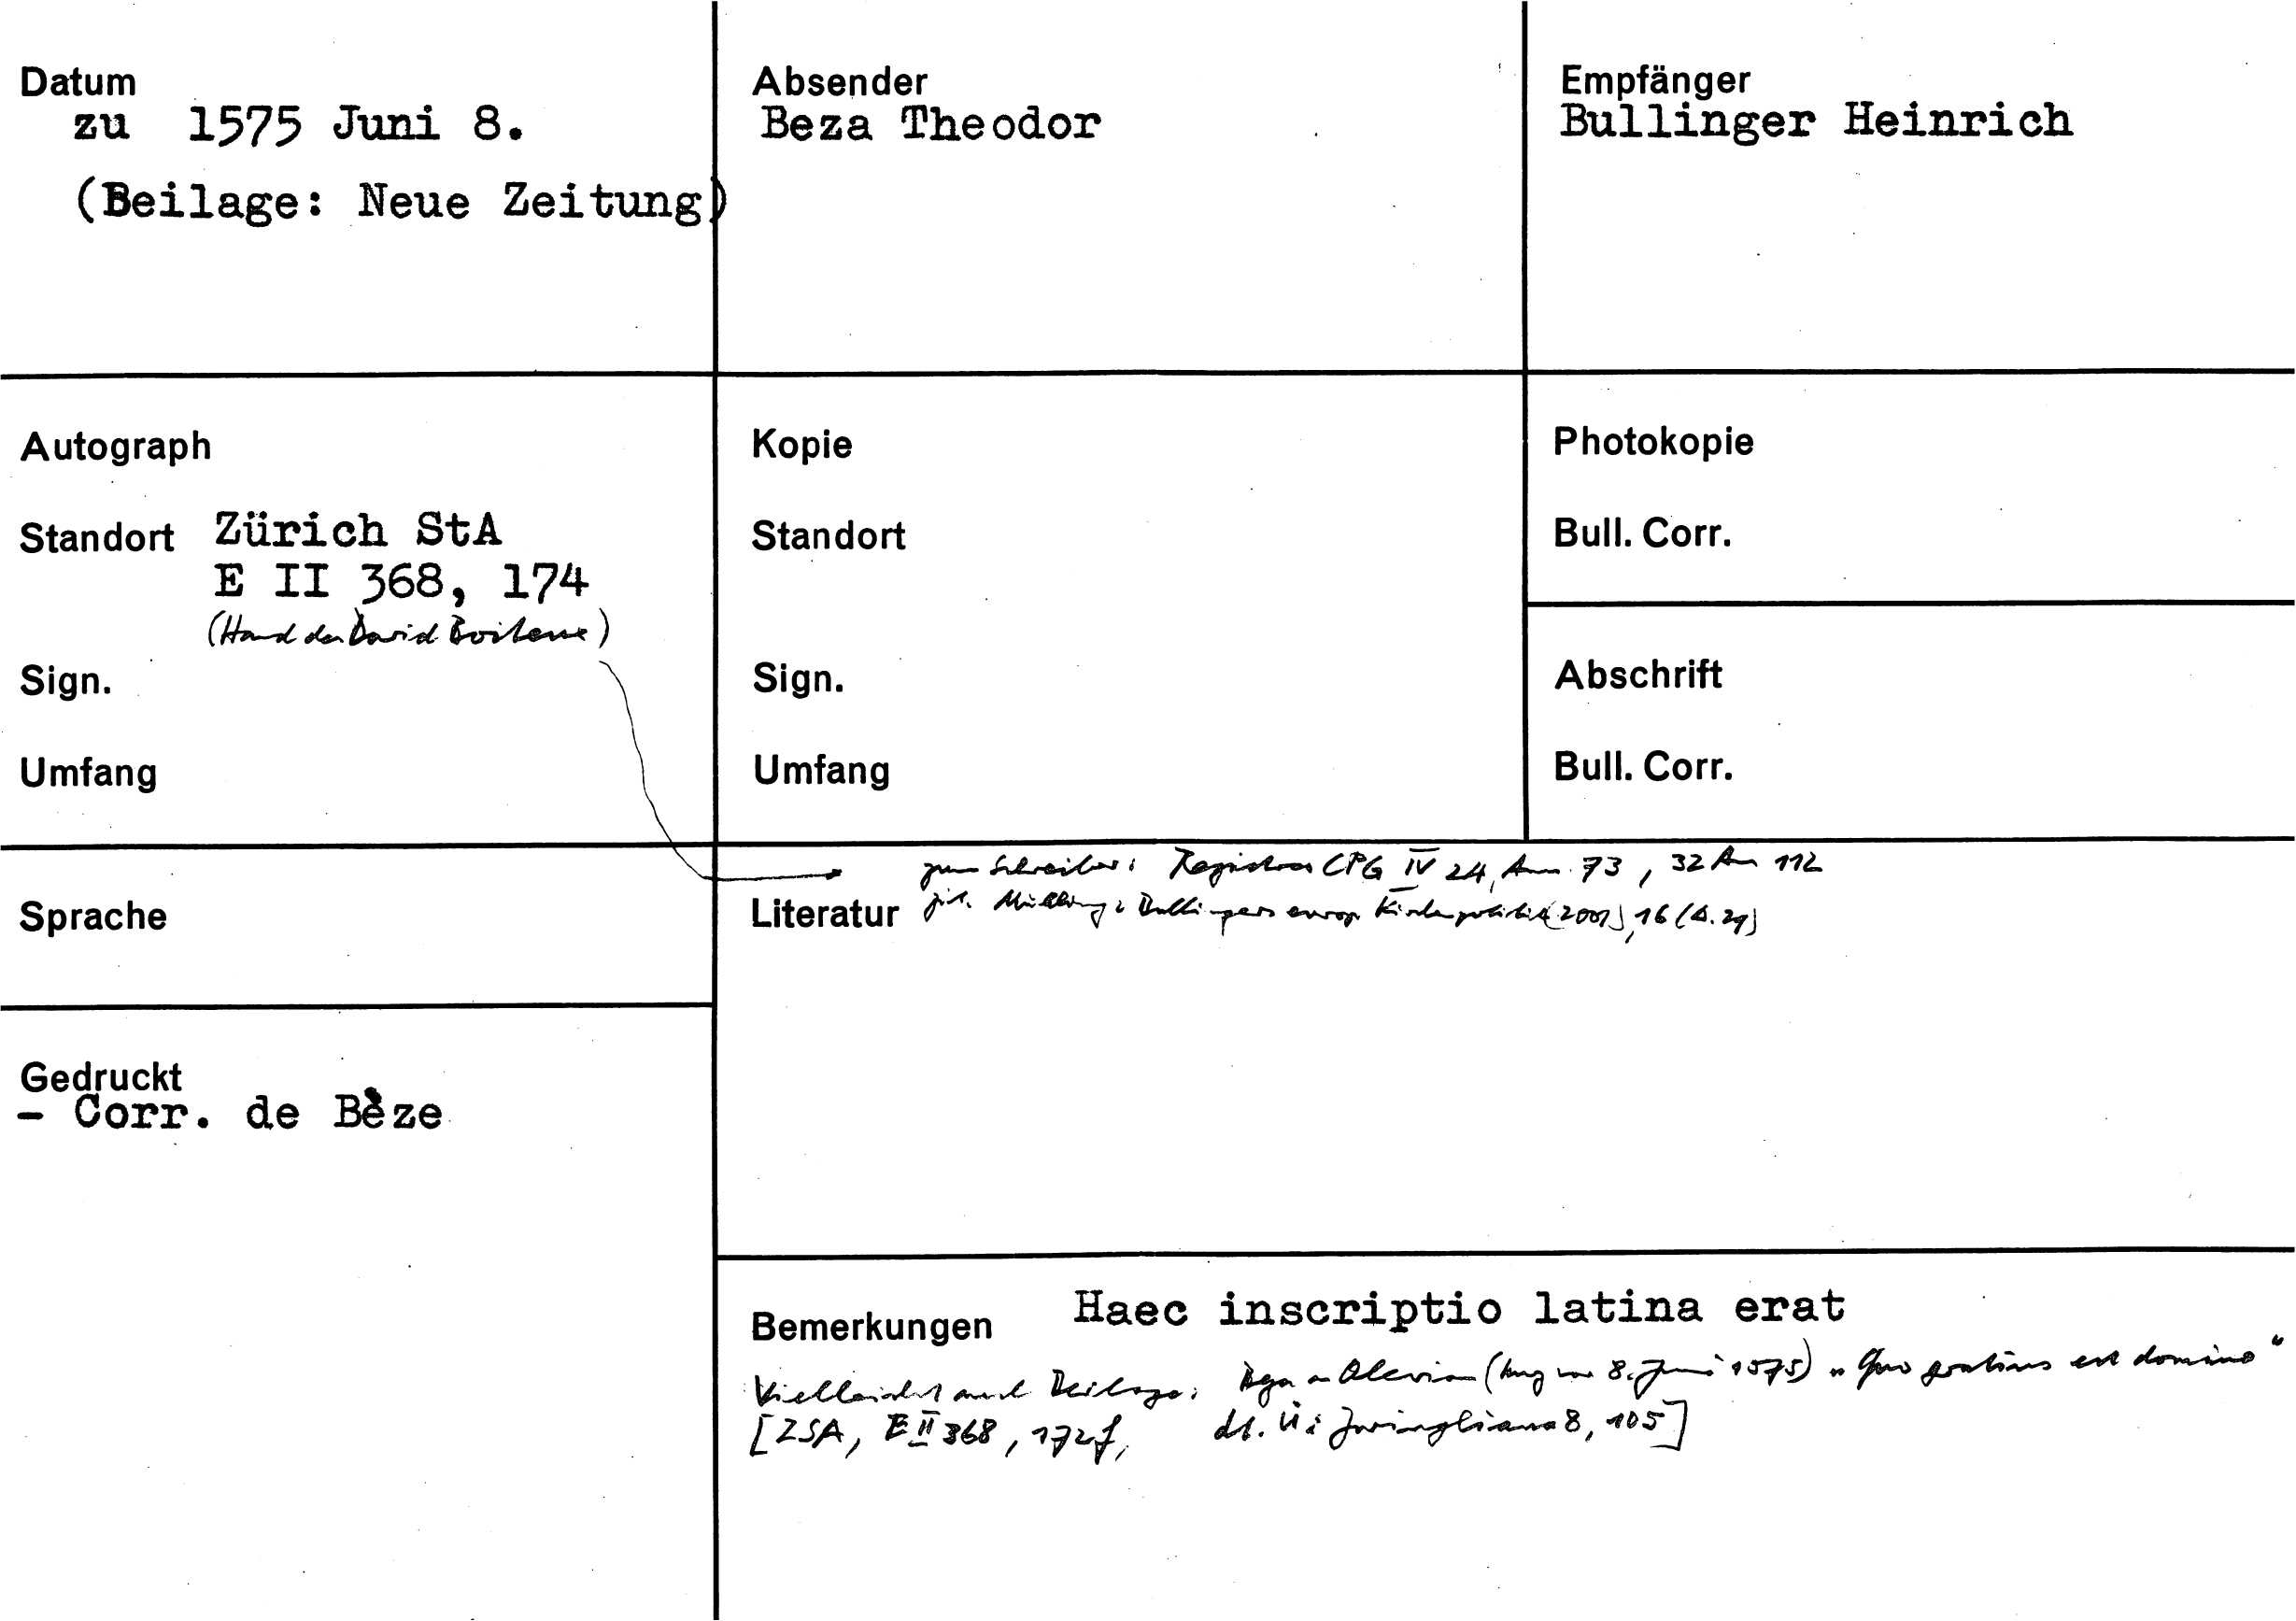 Datum
zu 1575 Juni 8.
(Beilage: Neue Zeitung)
Absender
Beza Theodor
Empfänger
Bullinger Heinrich
Autograph
Standort Zürich StA
E II 368, 174
(Hand des David
Sign.
Umfang
Kopie
Standort
Sign.
Umfang
Photokopie
Bull. Corr.
Abschrift
Bull. Corr.
Sprache
Gedruckt
- Corr. de Bèze
zum Schreiber: Registres CPG IV 24, Anm. 73, 32 Anm 112
Literatur zit. Mühling: Bullingers europ. Kirchenpolitik (2001), 16 (A. 29)
Bemerkungen Haec inscriptio latina erat
Vielleicht auch Beilage: an Olevian (kurz vor 8. Juni 1575) „Quo gratius est domino"
[ZSA, E II 368, 172f, dt. Ü: Zwingliana 8, 105]